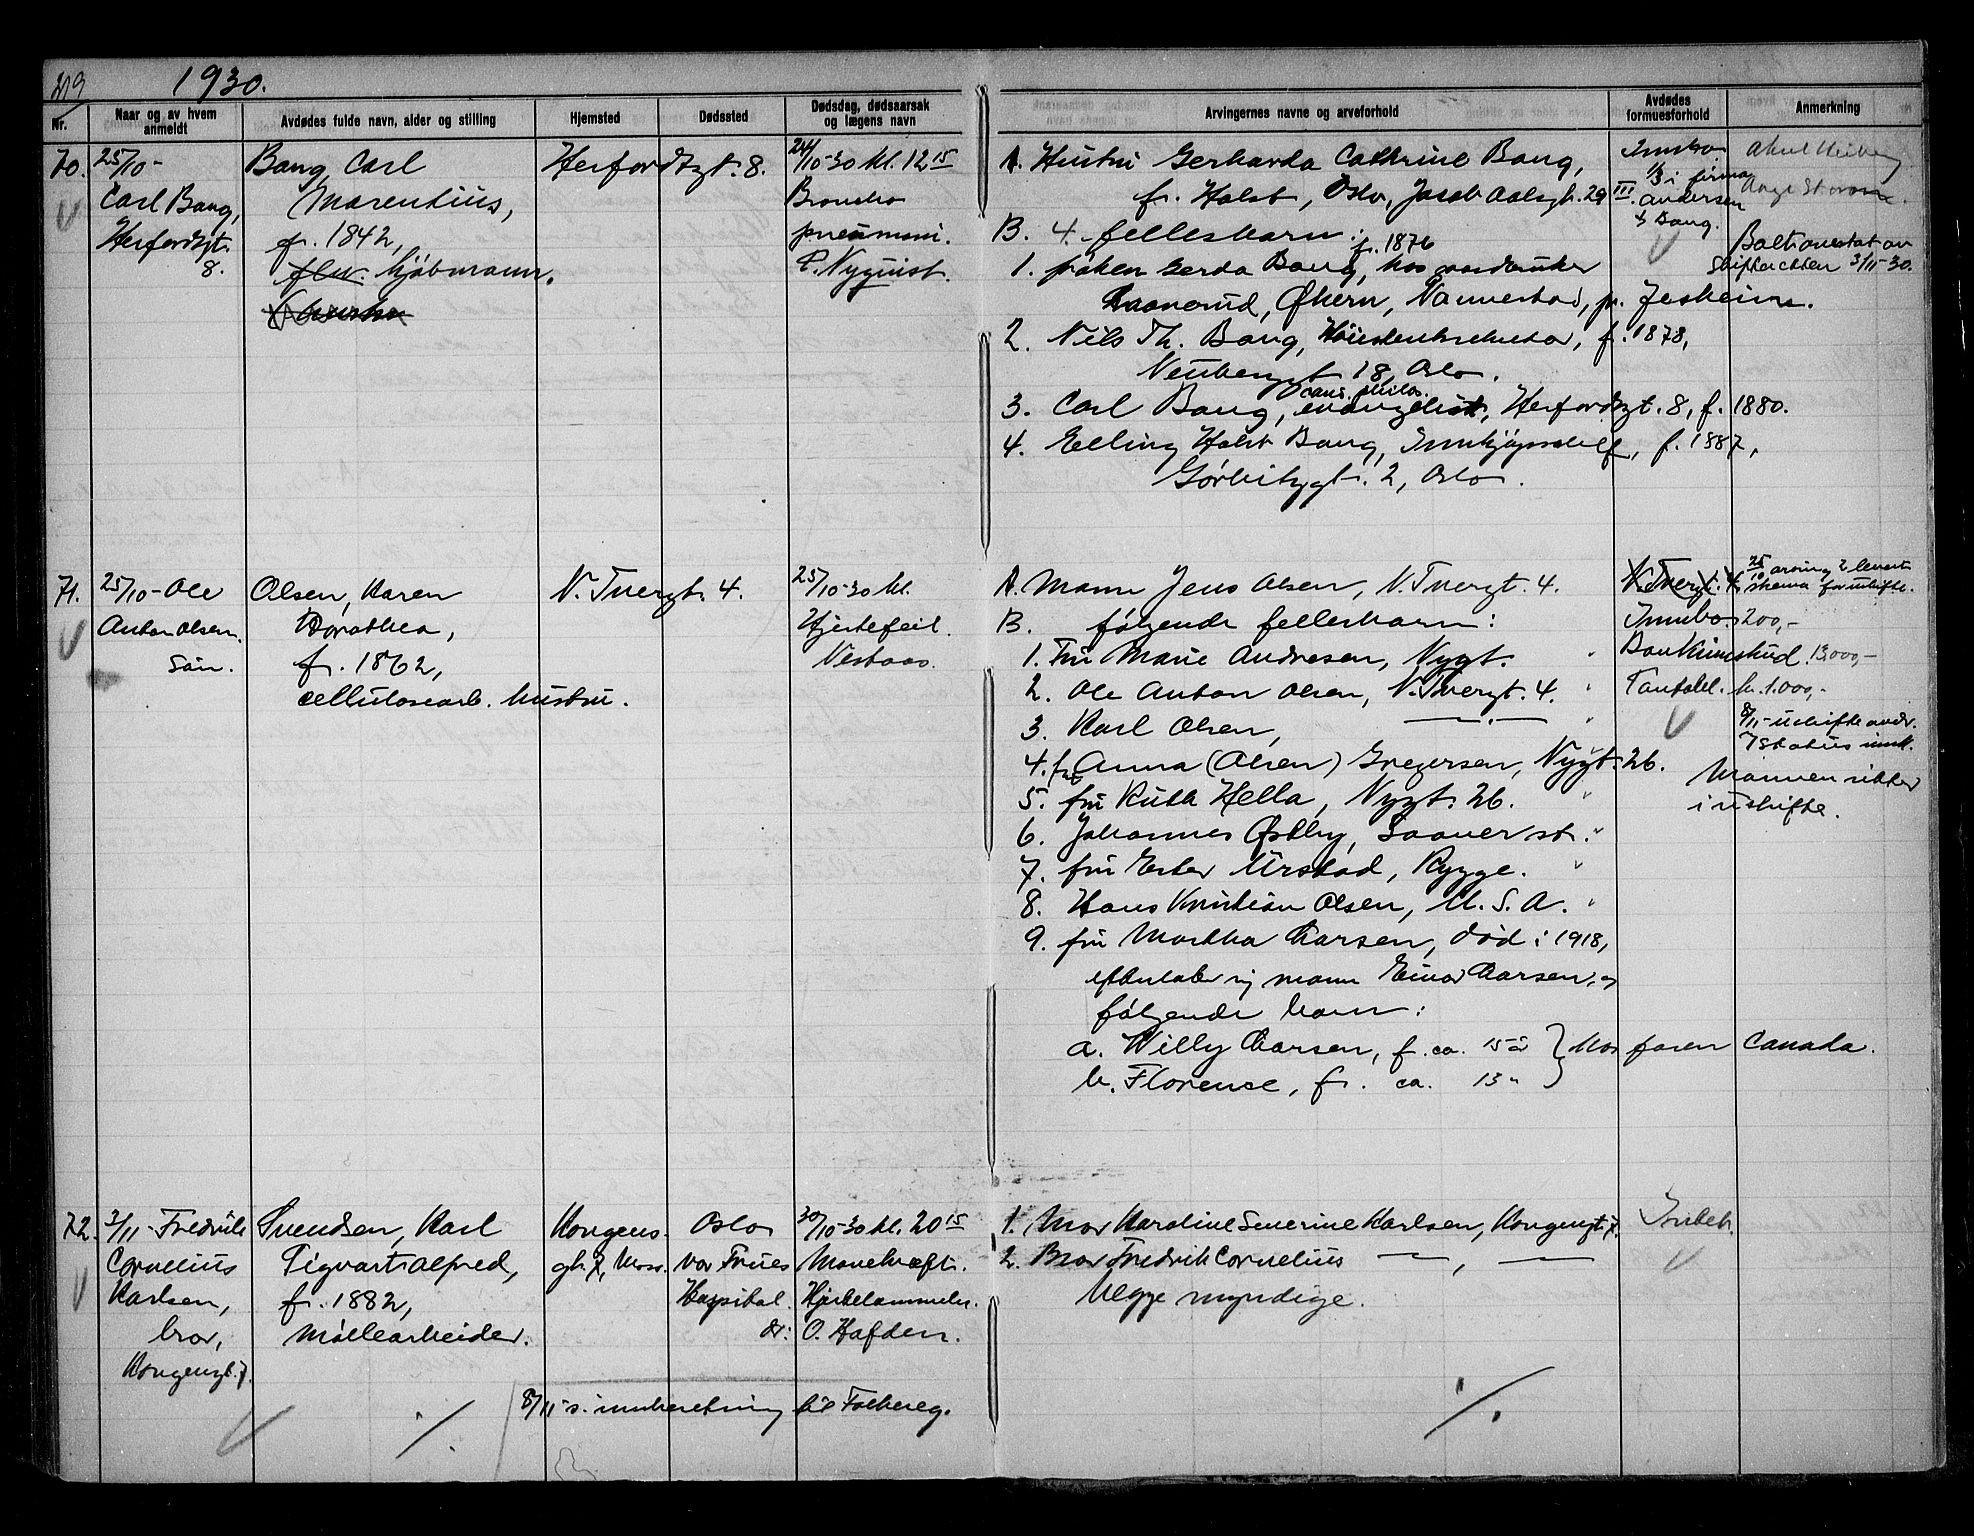 219
1930.
Nr.
Naar og av hvem anmeldt
Avdødes fulde navn, alder og stilling
Hjemsted
Dødssted
Dødsdag, dødsaarsak og lægens navn
Arvingernes navne og arveforhold
Avdødes formuesforhold
Anmerkning
70.
25/10-
Carl Bang,
Herfordtzgt.
8.
Bang, Carl
Marentius,
f. 1842,
fhv. kjöbmann.
Herfordtzgt. 8.
24/10-30 kl. 12 15
Broncho
pneumoni.
P. Nyquist.
A. Hustru Gerharda Cathrine Bang,
f. Holst, Oslo, Jacob Aalsgt. 29 III.
B. 4 fellesbarn:
1. frøken Gerda Bang, f. 1876, hos gardbruker
Haanerud, Økern, Nannestad, p. Jesheim.
2. Nils Th. Bang, f. 1878,
Neubergt 18, Oslo.
3. Carl Bang, cand. philos. evangelist, Herfordtzgt. 8, f. 1880.
4. Elling Holst Bang, Innkjøpschef, f. 1887,
Gørbitzgt. 2, Oslo.
Innbo
1/3 i firma
Andersen
& Bang.
Axel Heiberg
Aage Storm
skifteretten 3/11-30.
71.
25/10- Ole
Anton Olsen.
Sön.
Olsen, Karen
Dorothea,
f. 1862,
cellulosearb. hustru.
N. Tvergt. 4.
25/10-30 kl.
Hjertefeil.
Nesbaas.
A. Mann Jens Olsen, N. Tvergt. 4.
B. følgende fellesbarn:
1. Fru Marie Andresen, Nygt. "
2. Ole Anton Olsen, N. Tvergt. 4. "
3. Karl Olsen, — " — "
4. fru Anna (Olsen) Gregersen, Nygt. 26.
5. fru Ruth Hella, Nygt. 26. "
6. Johannes Østby, Saaner st. "
7. fru Ester Urstad, Rygge. "
8. Hans Kristian Olsen, U. S. A. "
9. fru Martha Aarsen, død i 1918,
efterlater sig mann Einar Aarsen, og
følgende barn:
a. Willy Aarsen, f. ca. 15 år } Hos faren Canada.
b. Florense, f. ca. 13 "
N. Tvergt. 4.
Innbo 200,-
Bankinnskud 13000,-
Tantobl. kr. 1.000,-
skema for uskifte.
8/11- uskifte andr.
7 status innk.
Mannen sitter
i uskifte.
72.
3/11- Fredrik
Cornelius
Karlsen,
bror,
Kongensgt. 7.
Svendsen, Karl
Sigvart Alfred,
f. 1882,
Möllearbeider.
Kongens-
gt. 7, Moss.
Oslo
Vor Frues
Hospital.
30/10-30 kl. 20 15
Mavekræft.
Hjertelammelse.
dr: O. Hafden.
1. Mor Karoline Severine Karlsen, Kongensgt. 7.
2. Bror Fredrik Cornelius — " — , — " —
Begge myndige.
Intet.
8/11 s. innberetning til Folkereg.